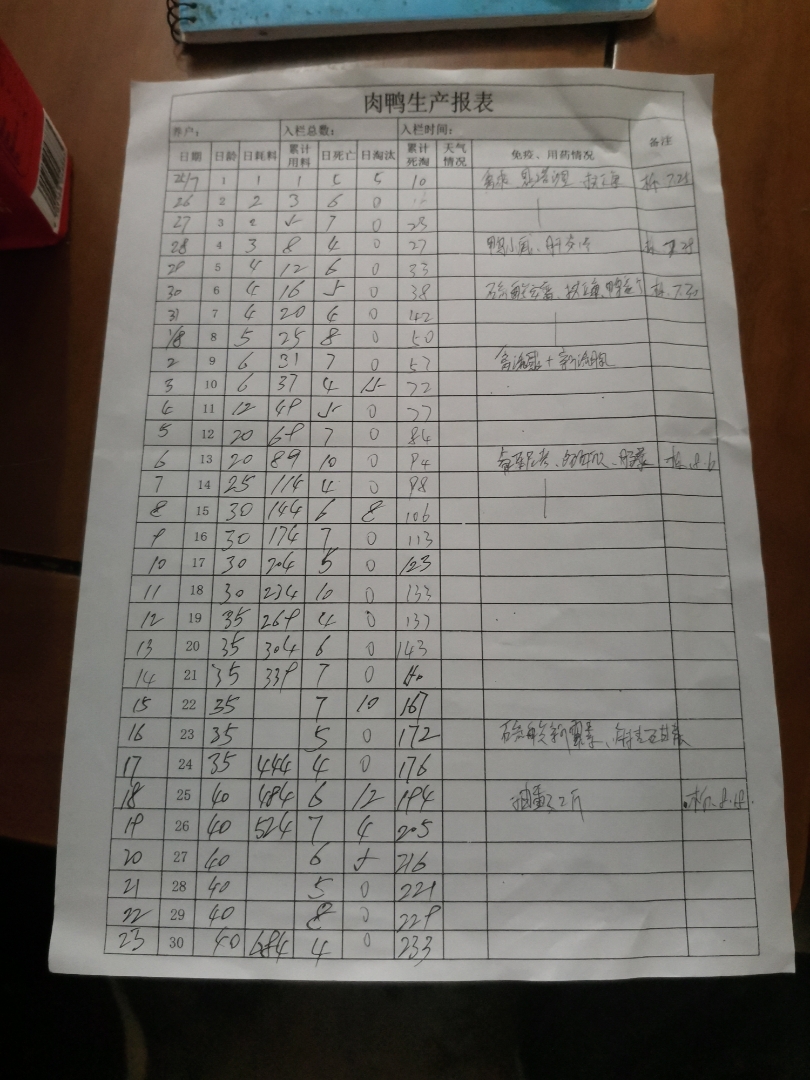 肉鸭生产报表
养户： 入栏总数： 入栏时间： 备注
日期 日龄 日耗料 累计用料 日死亡 日淘汰 累计死淘 天气情况 免疫、用药情况
25/7 1 1 1 5 5 10
26 2 2 3 6 0
27 3 2 5 7 0 23
28 4 3 8 4 0 27
29 5 4 12 6 0 33
30 6 4 16 5 0 38
31 7 4 20 4 0 142
1/8 8 5 25 8 0 50
2 9 6 31 7 0 57 禽流感+新流腺
3 10 6 37 4 15 72
4 11 12 49 5 0 77
5 12 20 69 7 0 84
6 13 20 89 10 0 94
7 14 25 114 4 0 98
8 15 30 144 6 8 106
9 16 30 174 7 0 113
10 17 30 204 5 0 123
11 18 30 234 10 0 133
12 19 35 269 4 0 137
13 20 35 304 6 0 143
14 21 35 339 7 0
15 22 35 7 10 167
16 23 35 5 0 172
17 24 35 444 4 0 176
18 25 40 484 6 12 194
19 26 40 524 7 4 205
20 27 40 6 5 216
21 28 40 5 0 221
22 29 40 8 0 229
23 30 40 684 4 0 233